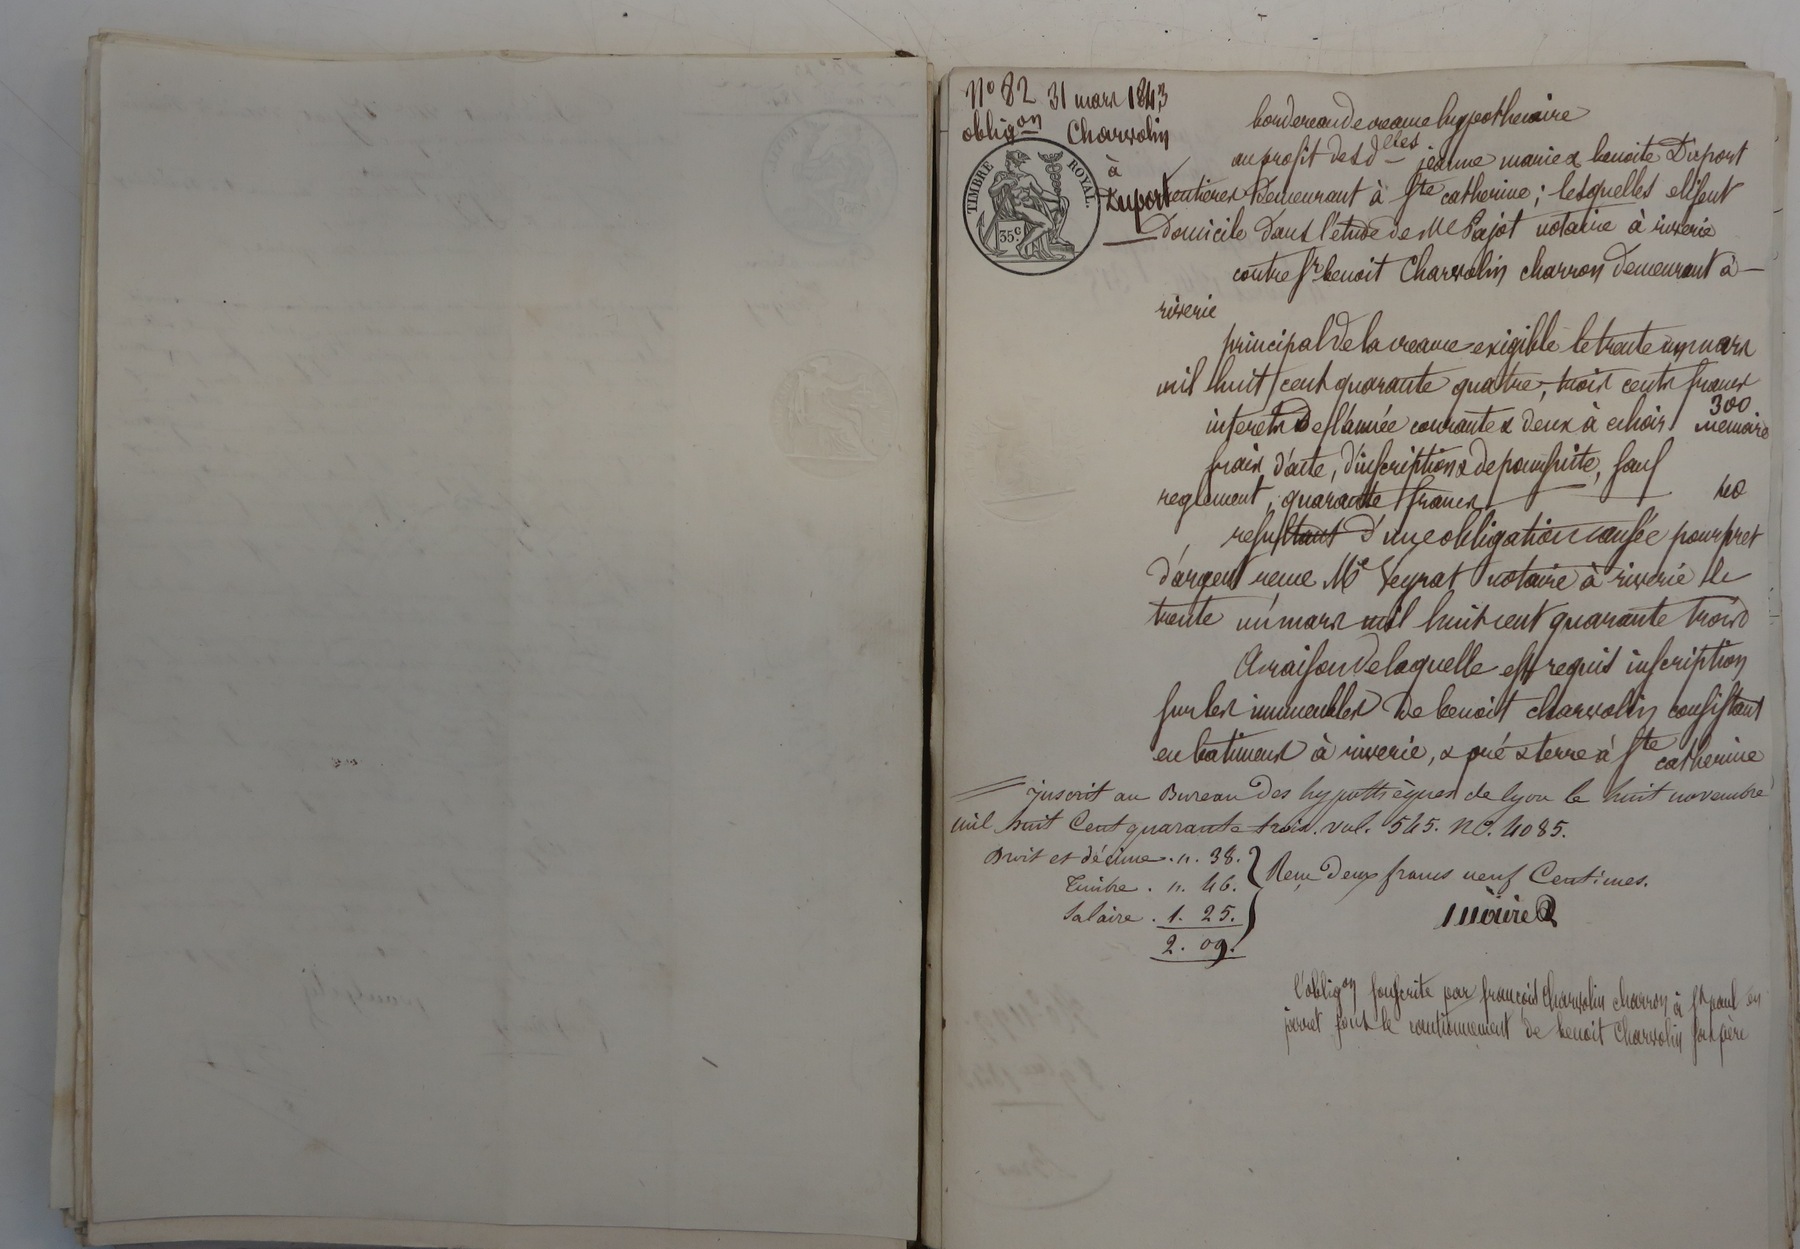 N° 82 31 mars 1843
obligon Charvolin
à
Duport
TIMBRE ROYAL.
35 c.
bordereau de creance hypothecaire
au profit de sd lles jeanne marie & benoite Duport
rentieres demeurant à Ste catherine; lesquelles elisent
Domicile dans l'étude de Me Pajot notaire à riverie
contre sr benoit Charvolin charron demeurant à
riverie
principal de la creance exigible le trente un mars
mil huit cent quarante quatre, trois cents francs
300
interets de l'année courante & deux à echoir memoire
frais d'acte, d'inscription & de poursuite, sauf
reglement, quarante francs 40
resultant d'une obligation causée pour pret
d'argent recue Me Veyrat notaire à riverie le
trente un mars mil huit cent quarante trois
A raison de laquelle est requis inscription
sur les immeubles de benoit charvolin consistant
en batiment à riverie, & pré & terre à Ste catherine
inscrit au Bureau des hypothèques de lyon le huit novembre
mil huit Cent quarante trois. vol. 545. no. 4085.
Droit et décime . ". 38.
Timbre . ". 46.
Salaire . 1. 25.
2. 09.
Reçu Deux francs neuf Centimes.
l'obligon souscrite par françois Charvolin charron à St paul en
jarret sous le cautionnement de benoit Charvolin son père